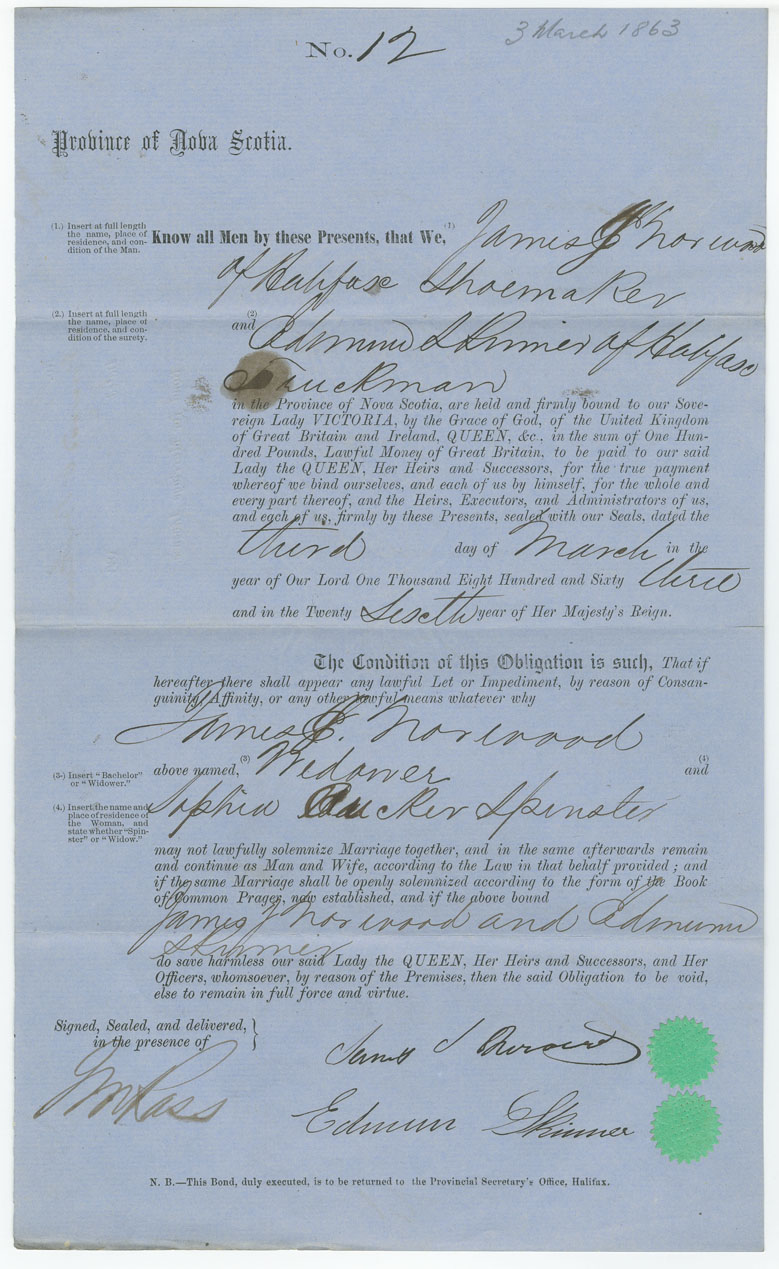 No. 12
3 March 1863
Province of Nova Scotia.
(1.) Insert at full length
the name, place of
residence, and con-
dition of the Man.
Know all Men by these Presents, that We, (1) James J Norwood
of Halifax Shoemaker
(2.) Insert at full length
the name, place of
residence, and con-
dition of the surety.
(2)
and Edmund Skinner of Halifax
Truckman
in the Province of Nova Scotia, are held and firmly bound to our Sove-
reign Lady VICTORIA, by the Grace of God, of the United Kingdom
of Great Britain and Ireland, QUEEN, &c., in the sum of One Hun-
dred Pounds, Lawful Money of Great Britain, to be paid to our said
Lady the QUEEN, Her Heirs and Successors, for the true payment
whereof we bind ourselves, and each of us by himself, for the whole and
every part thereof, and the Heirs, Executors, and Administrators of us,
and each of us, firmly by these Presents, sealed with our Seals, dated the
third day of March in the
year of Our Lord One Thousand Eight Hundred and Sixty three
and in the Twenty Sixth year of Her Majesty's Reign.
The Condition of this Obligation is such, That if
hereafter there shall appear any lawful Let or Impediment, by reason of Consan-
guinity, Affinity, or any other lawful means whatever why
James J. Norwood
(3.) Insert "Bachelor"
or "Widower."
above named, (3) Widower (4) and
(4.) Insert the name and
place of residence of
the Woman, and
state whether "Spin-
ster" or "Widow."
Sophia Spinster
may not lawfully solemnize Marriage together, and in the same afterwards remain
and continue as Man and Wife, according to the Law in that behalf provided; and
if the same Marriage shall be openly solemnized according to the form of the Book
of Common Prager, now established, and if the above bound
James J Norwood and Edmund
Skinner
do save harmless our said Lady the QUEEN, Her Heirs and Successors, and Her
Officers, whomsoever, by reason of the Premises, then the said Obligation to be void,
else to remain in full force and virtue.
Signed, Sealed, and delivered,
in the presence of
James J
Edmun Skinner
N. B.—This Bond, duly executed, is to be returned to the Provincial Secretary's Office, Halifax.